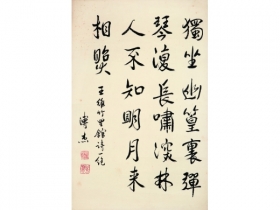 獨坐幽篁裏彈
琴復長嘯深林
人不知明月来
相照
王維竹里館詩一絕
溥杰